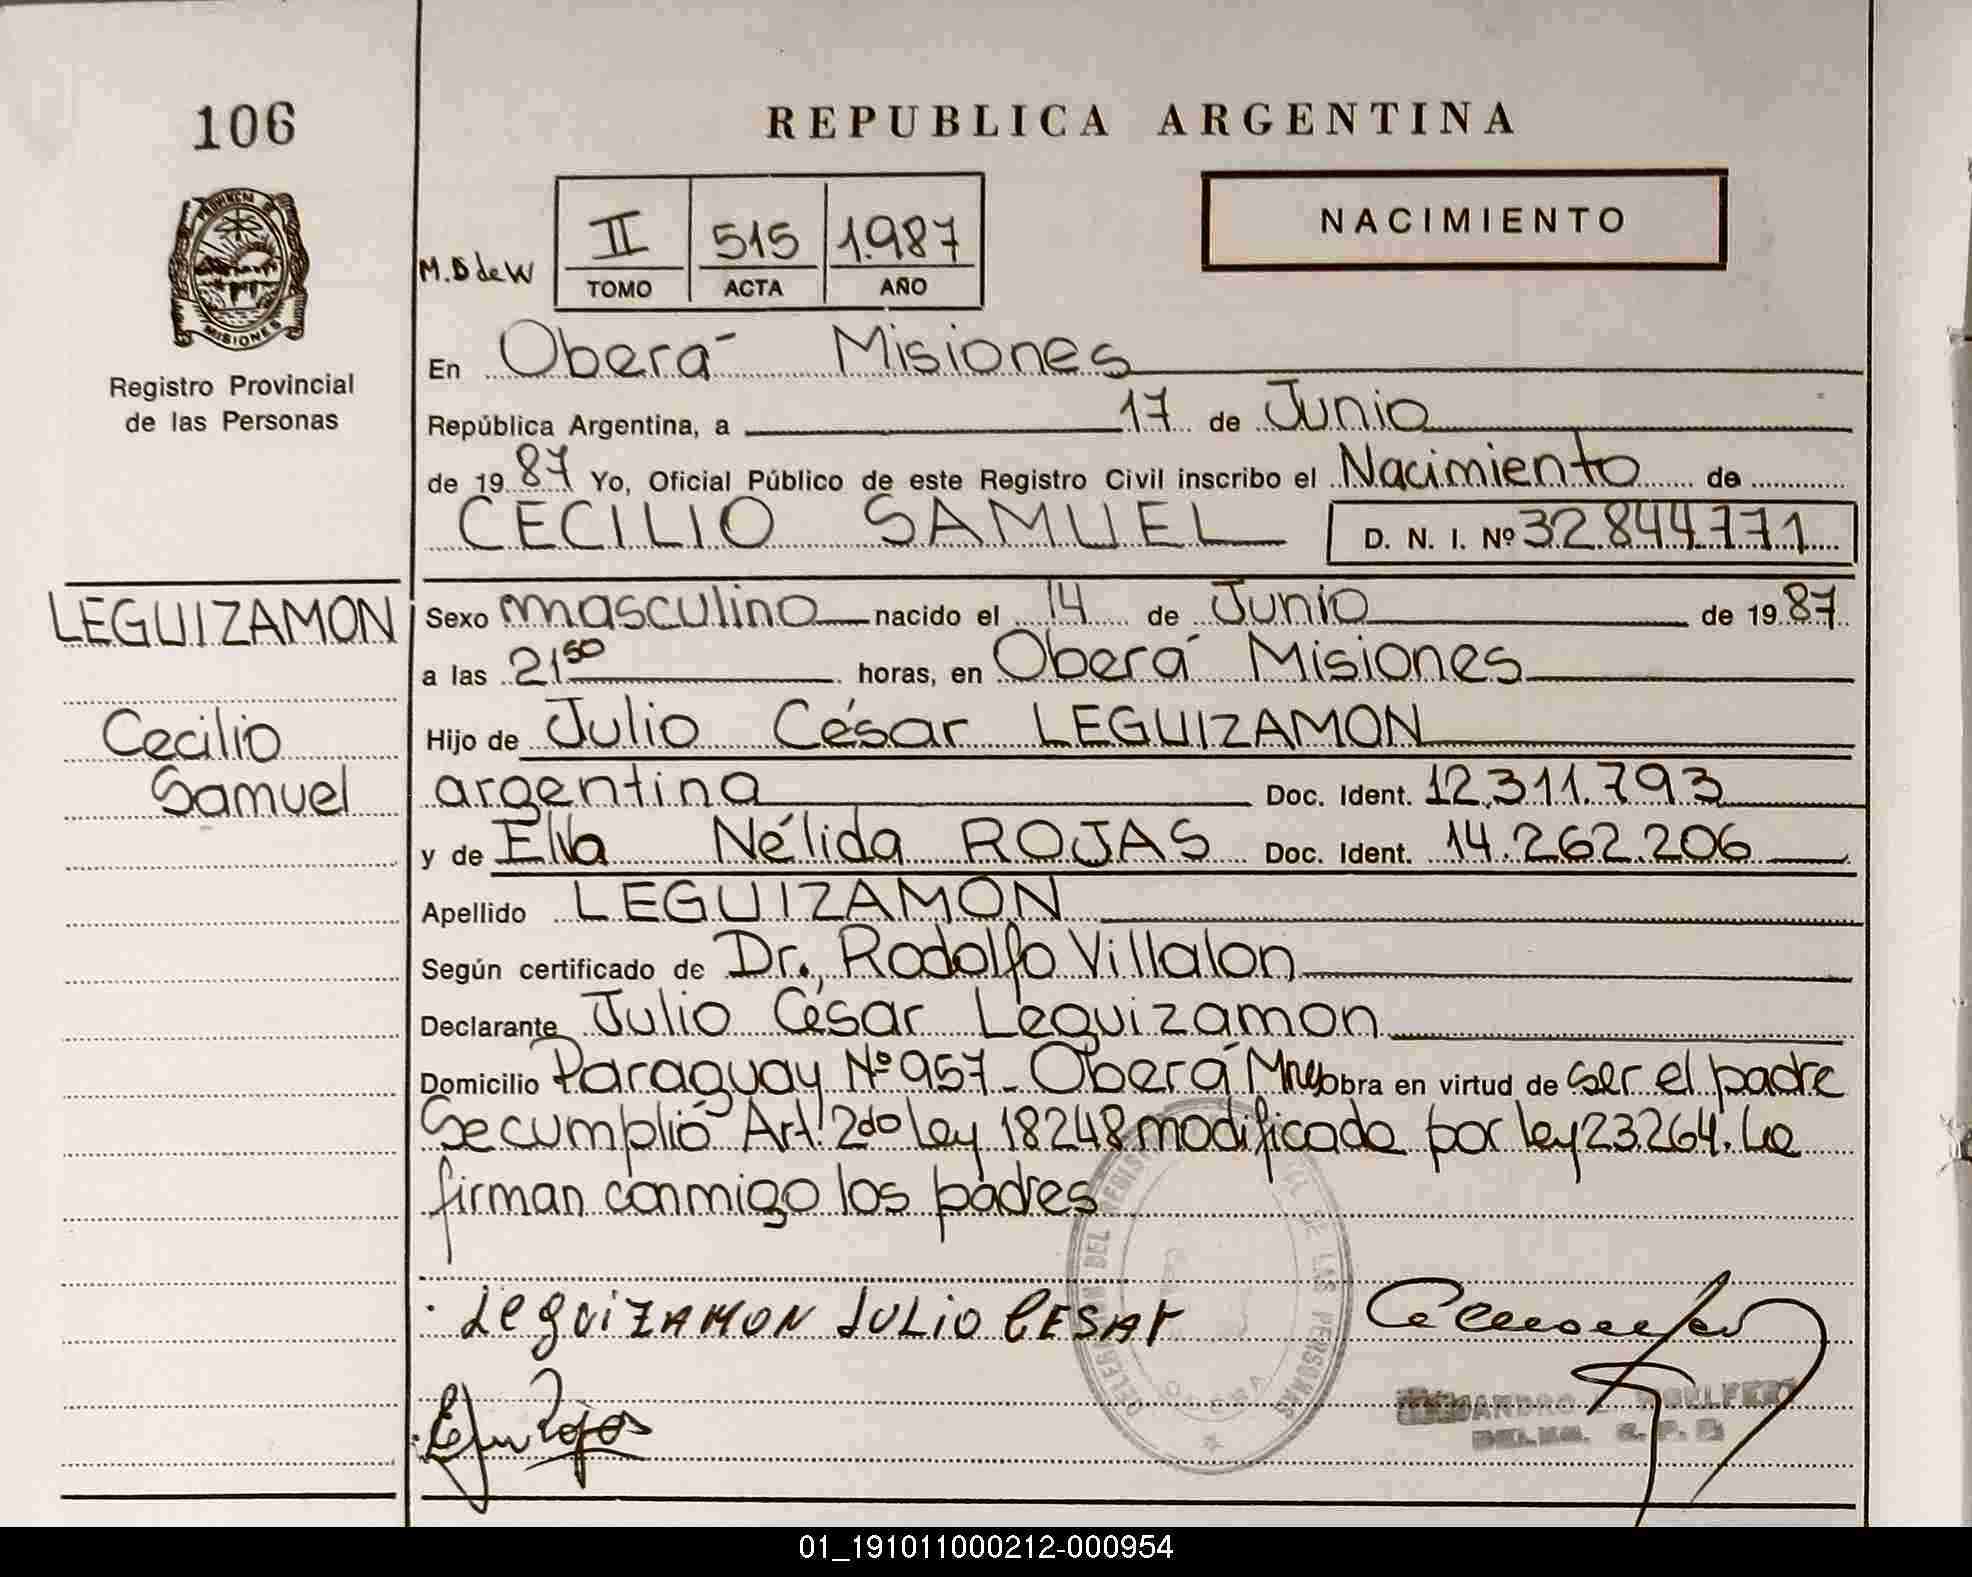 106
REPUBLICA ARGENTINA
PROVINCIA DE
MISIONES
Registro Provincial
de las Personas
M.D de W
II 515 1.987
TOMO ACTA AÑO
NACIMIENTO
En Oberá Misiones
República Argentina, a 17 de Junio
de 19 87 Yo, Oficial Público de este Registro Civil inscribo el Nacimiento de
CECILIO SAMUEL D. N. I. Nº 32.844.771
LEGUIZAMON
Cecilio
Samuel
Sexo masculino nacido el 14 de Junio de 19 87
a las 21 50 horas, en Oberá Misiones
Hijo de Julio César LEGUIZAMON
argentina Doc. Ident. 12.311.793
y de Elva Nélida ROJAS Doc. Ident. 14.262.206
Apellido LEGUIZAMON
Según certificado de Dr. Rodolfo Villalon
Declarante Julio César Leguizamon
Domicilio Paraguay Nº 957 - Oberá Mnes obra en virtud de ser el padre
Se cumplió Art. 2do ley 18248 modificada por ley 23.264. Le
firman conmigo los padres
LeguiZAMON JULIO CESAr
Rojas
DEL REGISTRO DE LAS PERSONAS
OBERA
01_191011000212-000954